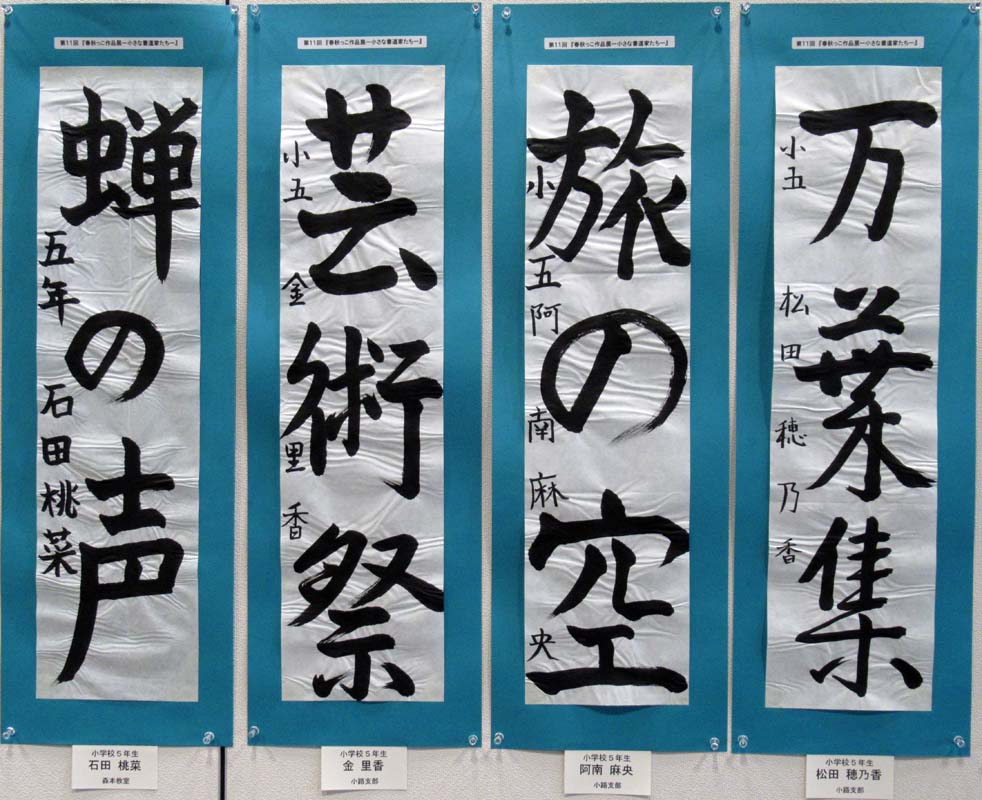 第11回『春秋っこ作品展ー小さな書道家たちー』
蝉の声
五年 石田桃菜
小学校5年生
石田 桃菜
森本教室
第11回『春秋っこ作品展ー小さな書道家たちー』
芸術祭
小五 金里香
小学校5年生
金 里香
小路支部
第11回『春秋っこ作品展ー小さな書道家たちー』
旅の空
小五 阿南麻央
小学校5年生
阿南 麻央
小路支部
第11回『春秋っこ作品展ー小さな書道家たちー』
万葉集
小五 松田穂乃香
小学校5年生
松田 穂乃香
小路支部